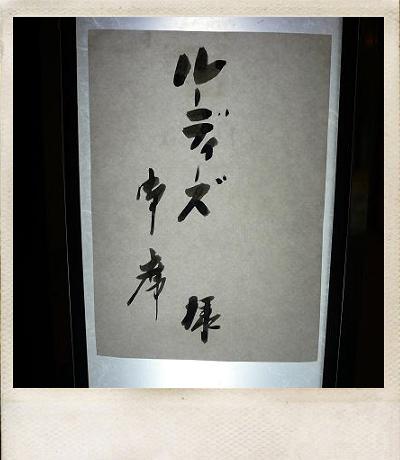 ルーディーズ 様
御席